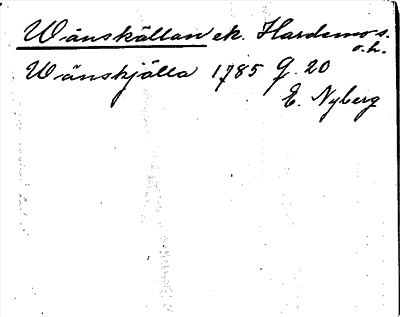 Wänskällan ek. Hardemo s.
o.h.
Wänskjälla 1785 G. 20
E. Nyberg